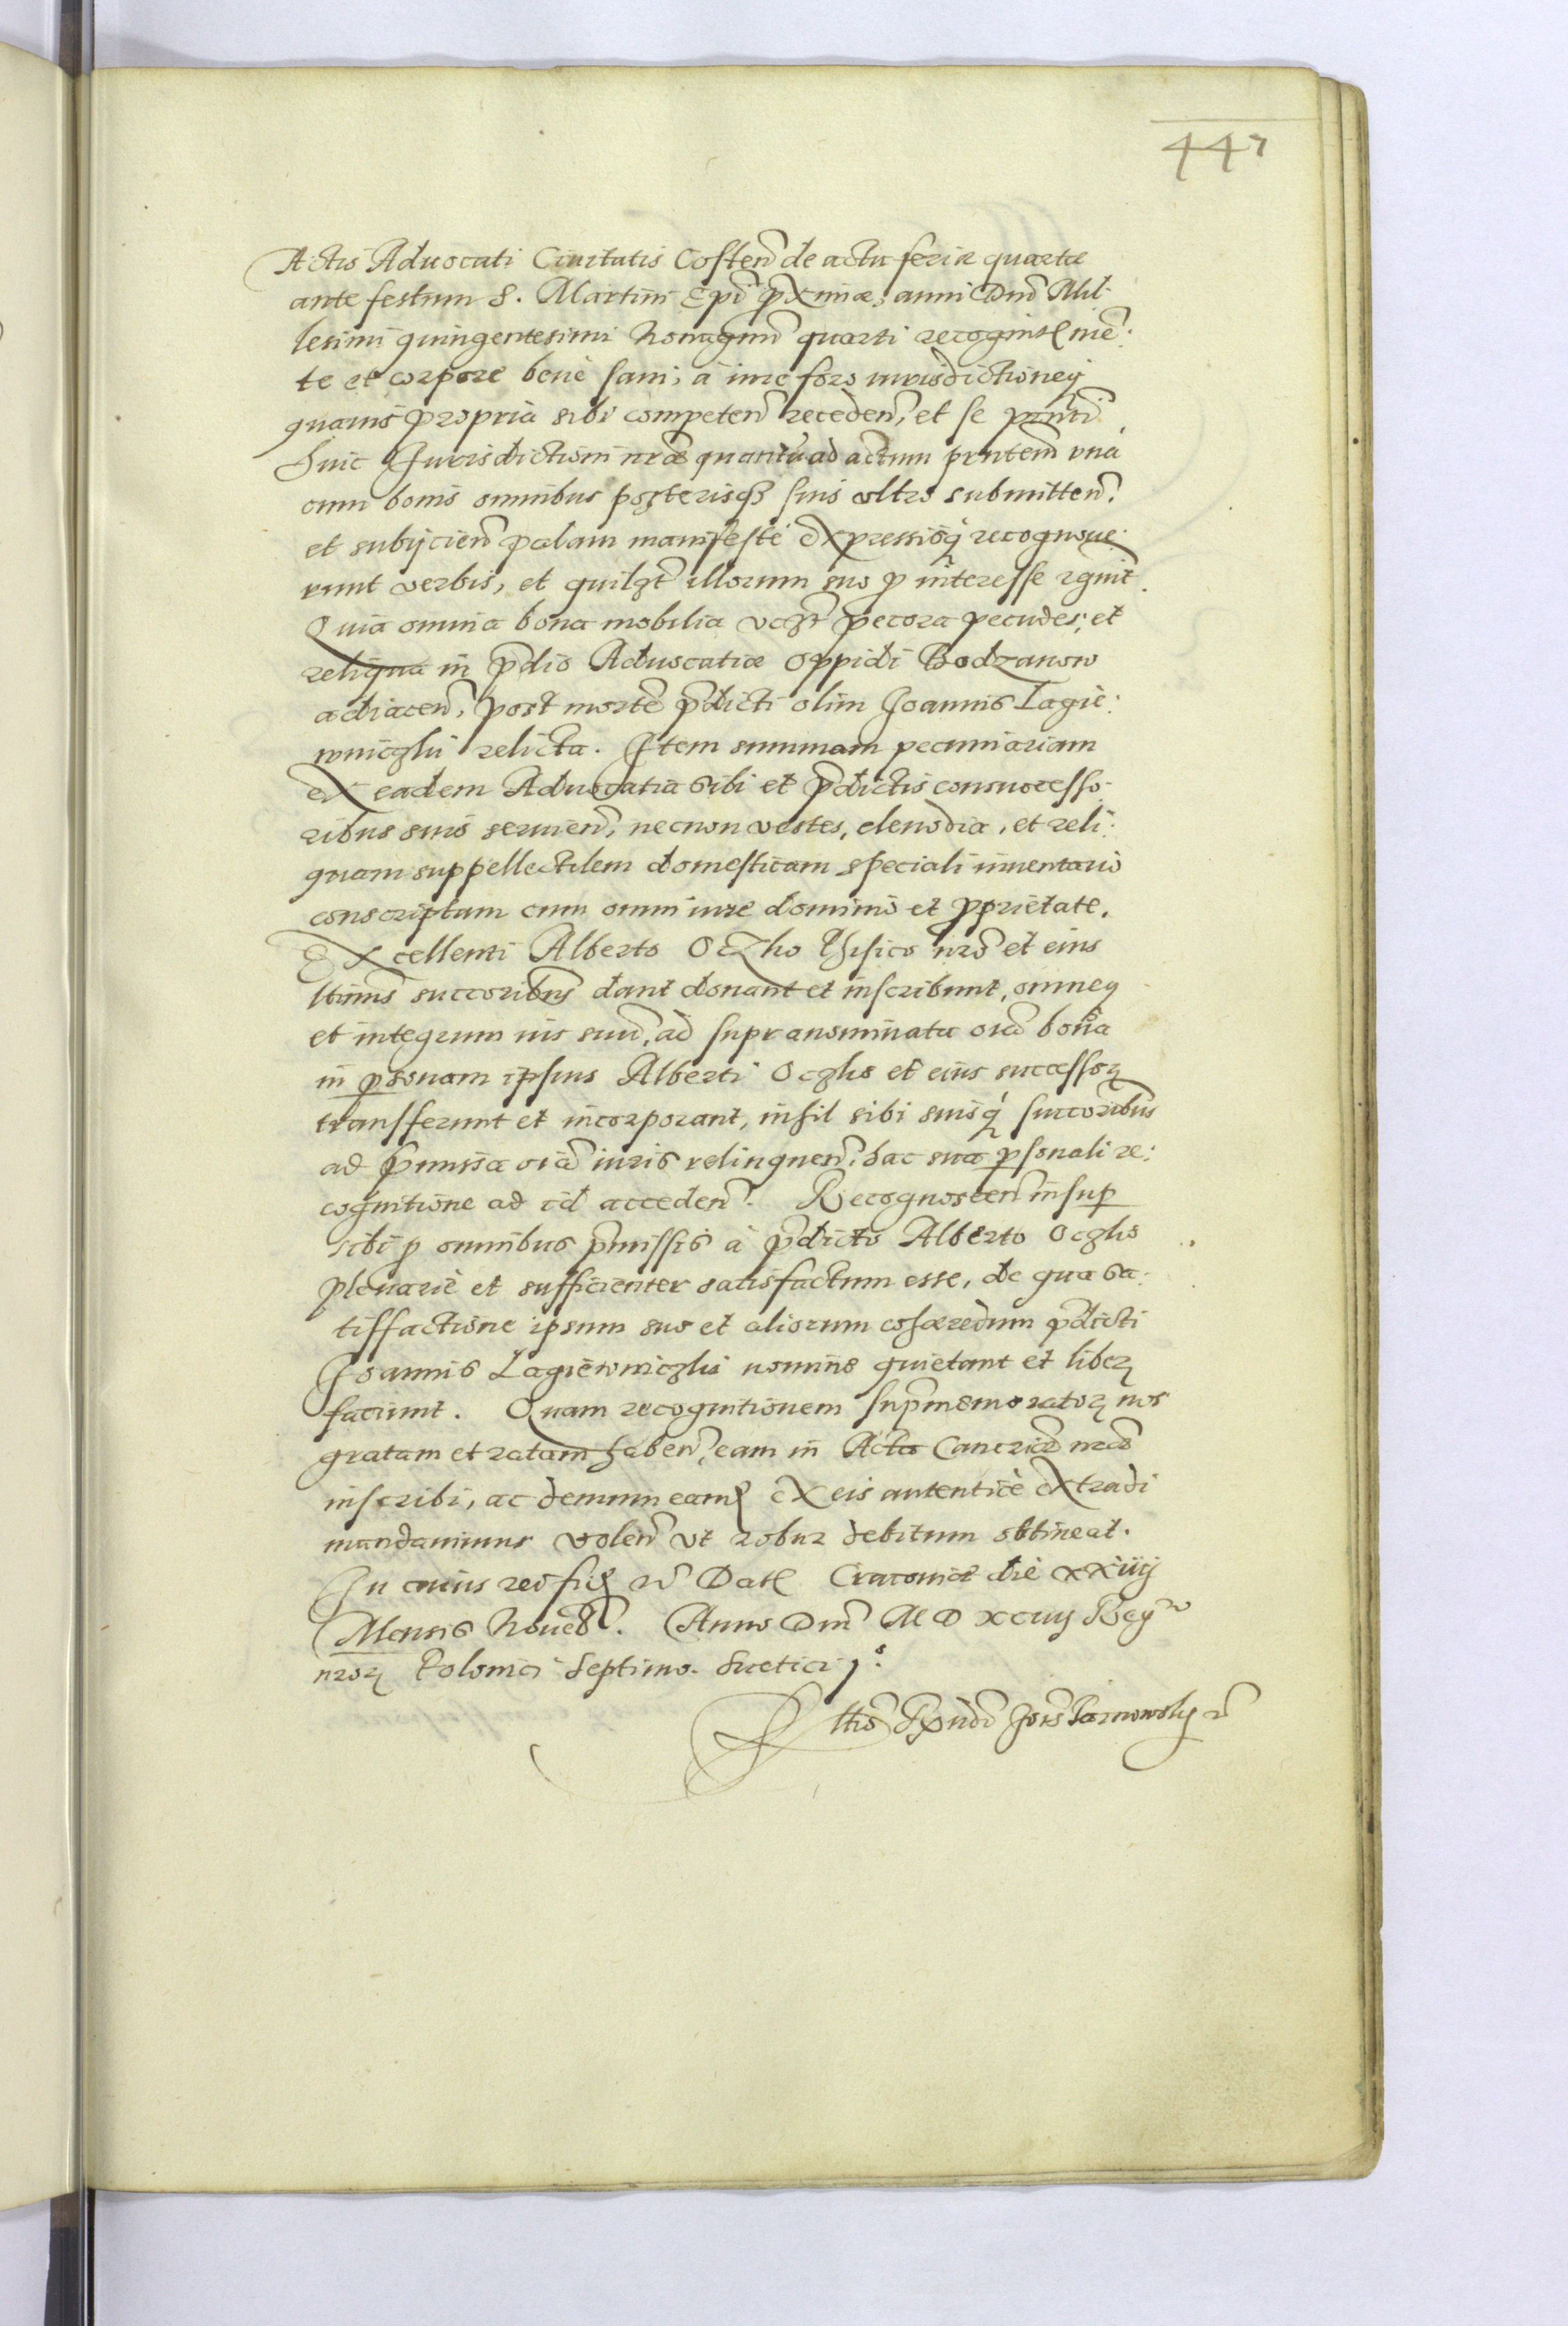 447
Actis Advocati Ciuitatis Costen̄ de actu feriæ quartæ
ante festum S. Martini Ep̄i p̄ximæ, anni Dn̄i Mil-
lesimi quingentesimi Nonagmi quarti recognit mē:
te et corpore benè sani, à iure foro iurisdictioneq̨
quauis propria sibi competen̄ receden̄, et se prn̄ti
huic Jurisdictioni nr̄æ quantū ad actum prn̄tem vnà
cum bonis omnibus posterisq3 suis vltro submitten̄
et subijcien̄ palam manifestè expressisq̨ recognoue:
runt verbis, et quilz̄t illorum suo p̱ interesse rgnit.
Quia omnia bona mobilia vczt pecora pecudes, et
reliqua in p̄dio Aduocatiæ oppidi Bodzanow
adiacen̄, post mortē p̄dicti olim Joannis Lagiè:
wniczki relicta. Item summam pecuniariam
ex eadem Aduocatia sibi et p̄dictis consuccesso-
ribus suis seruien̄, necnon vestes, clenodia, et reli:
quam suppellectilem domesticam speciali inuentario
conscriptam cum omni iure dominio et p̱prietate,
Excellenti Alberto Oczko Phisico nr̄o et eius
ltimis succoribus dant donant et inscribunt, omneq̨
et integrum ius suū, ad supranominata oīa bona
in p̱sonam ipsius Alberti Oczko et eius successoꝝ
transferunt et incorporant, nihil sibi suisq̨ succoribus
ad p̄missa oīa iuris relinquen̄, hac sua p̱sonali re:
cognitione ad id acceden̄. Recognoscen̄ insup̱
sibi p̱ omnibus p̄missis à p̄dicto Alberto Oczko
plenariè et sufficienter satisfactum esse, de qua sa:
tisfactione ipsum suo et aliorum cohæredum p̄dicti
Joannis Lagiewniczki nomine quietant et liberꝝ
faciunt. Quam recognitionem sup̄memoratoꝝ nos
gratam et ratam haben̄, eam in Acta Cancriæ nr̄æ
inscribi, ac demum eamꝗ ex eis autenticè extradi
mandauimus volen̄ vt robur debitum obtineat.
In cuius rei fiꝗ rc̄ Datꝭ Cracouiæ die xxiiij
Mensis Nouēb̄. Anno Dn̄i M D xciiij Regr
nroꝝ Poloniæ Septimo. Suetici 1o:
Ros̄ Joīs Tarnowsky